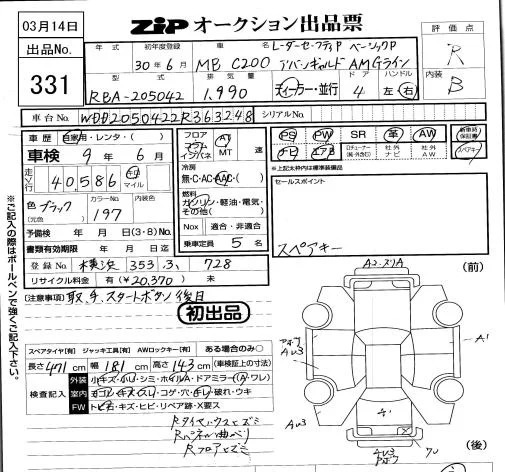 03月14日
ZIP オークション出品票
出品No.
331
評価点
R
内装
B
年式 初年度登録 車名 レーダーセーフティP ベーシックP
30年6月 MB C200 アバンギャルド AMGライン
型式 排気量 ドア ハンドル
RBA-205042 1,990 ディーラー・並行 4 左・右
車台No. WDD2050422R363248 シリアルNo.
車歴 自家用・レンタ・( )
車検 9年6月
走行 40,586 km マイル
色 ブラック (元色) カラーNo. 197 内装色
予備検 年 月 日(3・8)No.
書類有効期限 年 月 日迄
登録No. 横浜 353 728
リサイクル料金 有(¥20,370) 未
フロア AT
コラム インパネ MT 速
冷房
無・C・AC・AAC( )
燃料
ガソリン・軽油・電気・その他( )
Nox 適合・非適合
乗車定員 5名
PS PW SR 革 AW
ナビ 社外AW
新車時保証書
スペアキー
※上記枠内は標準装備品
セールスポイント
スペアキー
※ご記入の際はボールペンで強くご記入下さい。
[注意事項] 取、手、スタートボタン後日
初出品
スペアタイヤ[有] ジャッキ工具[有] AWロックキー[有] ある場合のみ○
長さ471cm 幅181cm 高さ143cm (車検証上の寸法)
検査記入
外装 小キズ・小凹・シミ・ホイルA・ドアミラー(A・ワレ)
室内 ヨゴレ・キズ・スリ・コゲ・穴・凹・破れ・ウキ
FW トビ石・キズ・ヒビ・リペア跡・X要ス
Rタイヤハウスヒズミ
Rパネル曲ベリ
Rフロアヒズミ
(前)
A2・スリA
AU3
A1
AU3
(後)